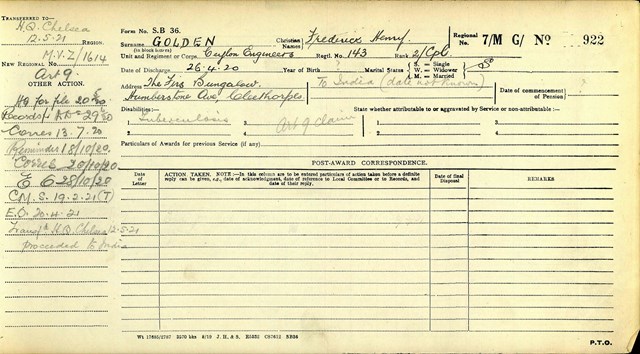 TRANSFERRED TO—
H.Q. Chelsea
12.5.21
REGION.
M.Y.Z/1614
NEW REGIONAL NO.
Art 9.
OTHER ACTION.
HQ for file 20
Records
Corres 13.7.20
Reminder 18/10/20.
Corres 20/10/20
E 6 28/10/20
C.M.S. 19.2.21 (T)
E.O. 20.4.21
Transf'd H.Q. Chelsea 12.5.21
proceeded to India
Form No. S.B 36.
Surname GOLDEN
(in block letters)
Christian Names Frederick Henry
Regional No. 7/M G/ No 922
Unit and Regiment or Corps Ceylon Engineers Regtl. No. 143 Rank 2/Cpl.
Date of Discharge 26.4.20 Year of Birth Marital Status S. = Single
W. = Widower
M. = Married
"S"
Address The Firs Bungalow, To India (date not known)
Humberstone Ave, Cleethorpes
Date of commencement of Pension
Disabilities:— State whether attributable to or aggravated by Service or non-attributable:—
1 Tuberculosis 3 1 3
2 4 Art 9 claim 2 4
Particulars of Awards for previous Service (if any)
POST-AWARD CORRESPONDENCE.
Date of Letter
ACTION TAKEN. NOTE:—In this column are to be entered particulars of action taken before a definite reply can be given, e.g., date of acknowledgment, date of reference to Local Committee or to Records, and date of their reply.
Date of final Disposal
REMARKS
J. H. & S.
P.T.O.